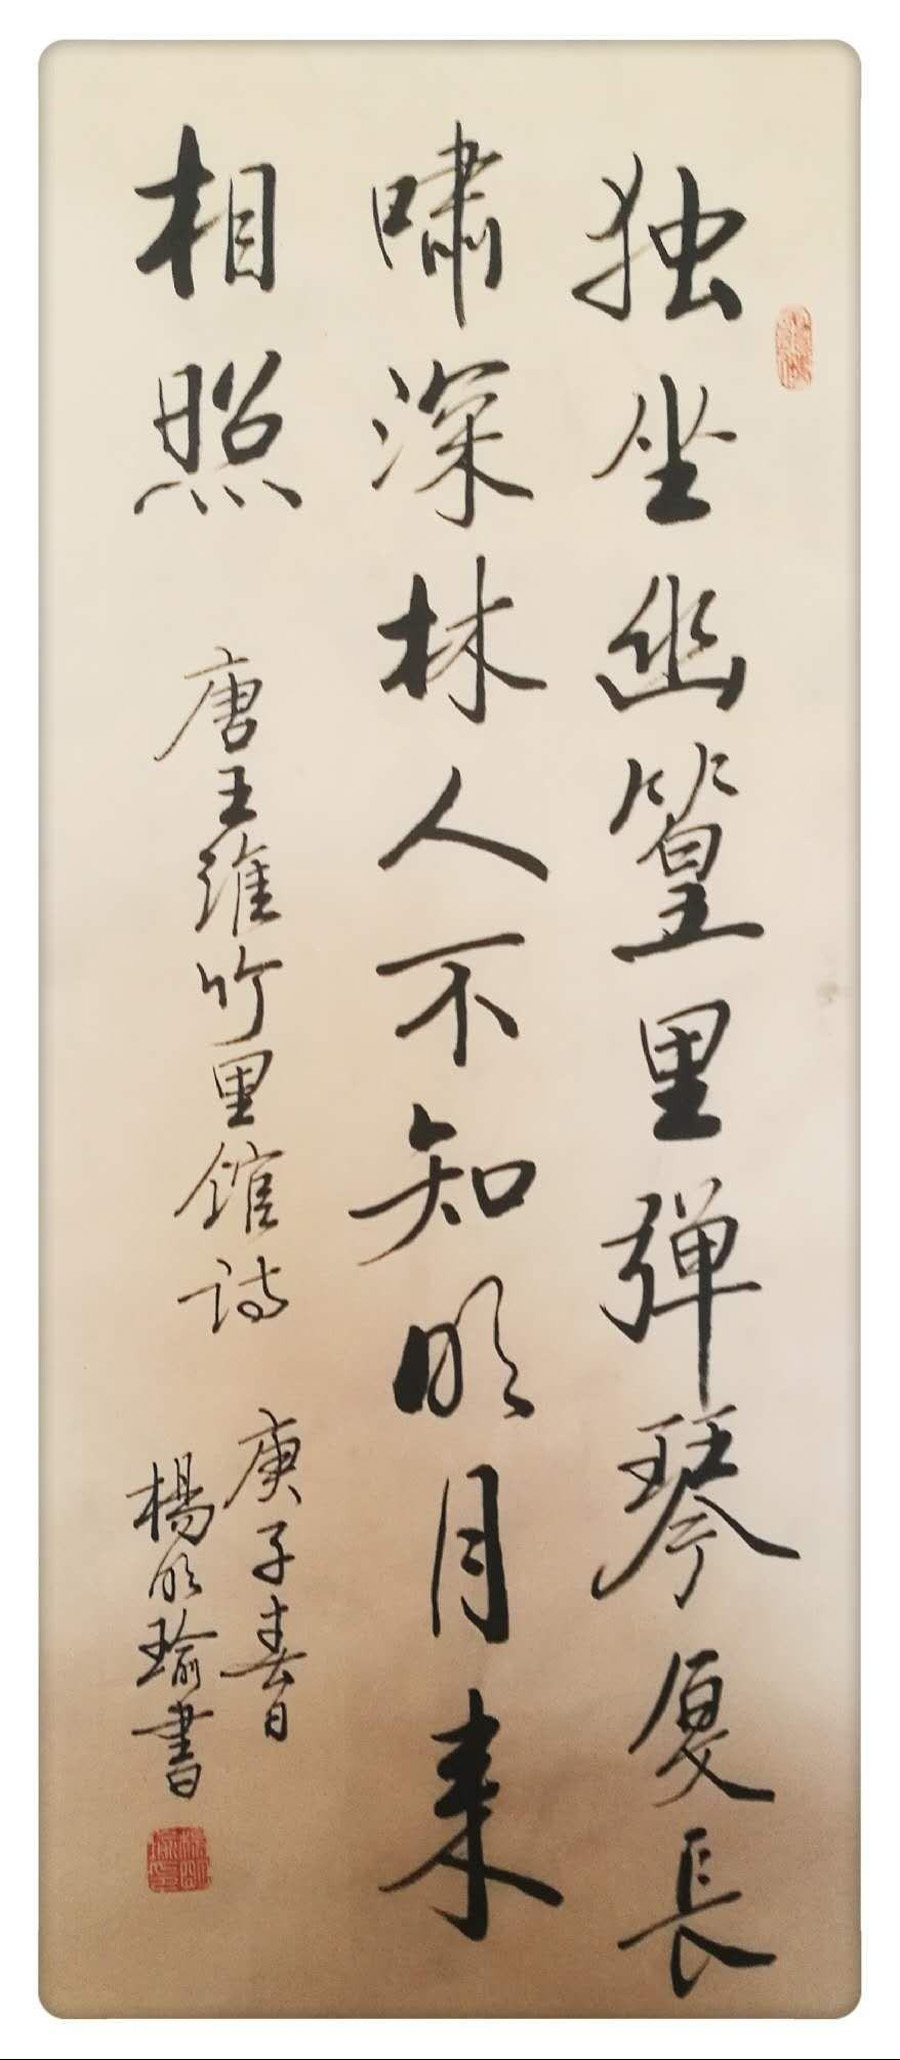 独坐幽篁里弹琴复长
嘯深林人不知明月来
相照
唐王維竹里館詩
庚子春日
楊明瑜書